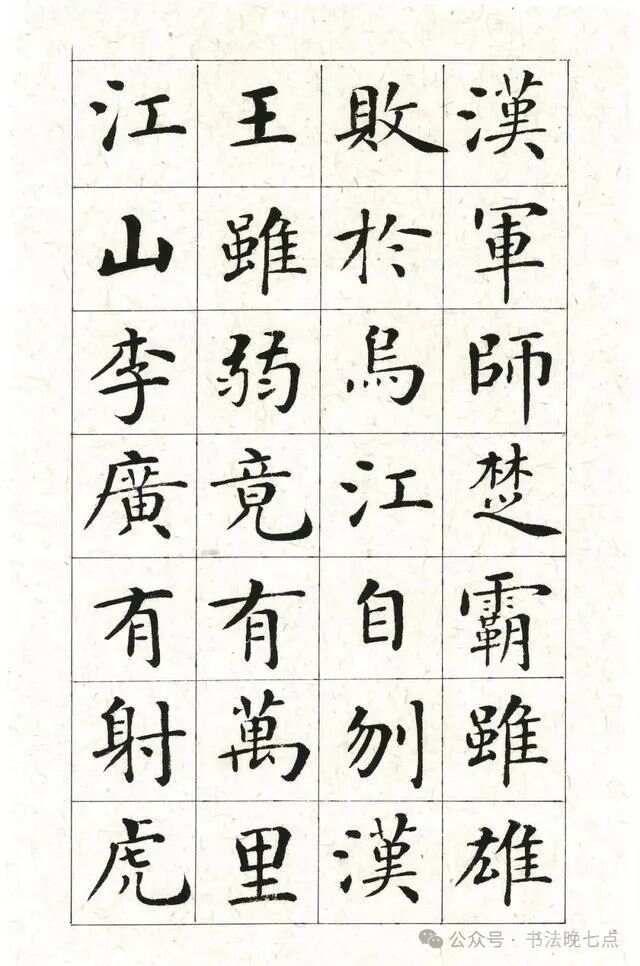 漢軍師楚霸雖雄
敗於烏江自刎漢
王雖弱竟有萬里
江山李廣有射虎
公众号·书法晚七点